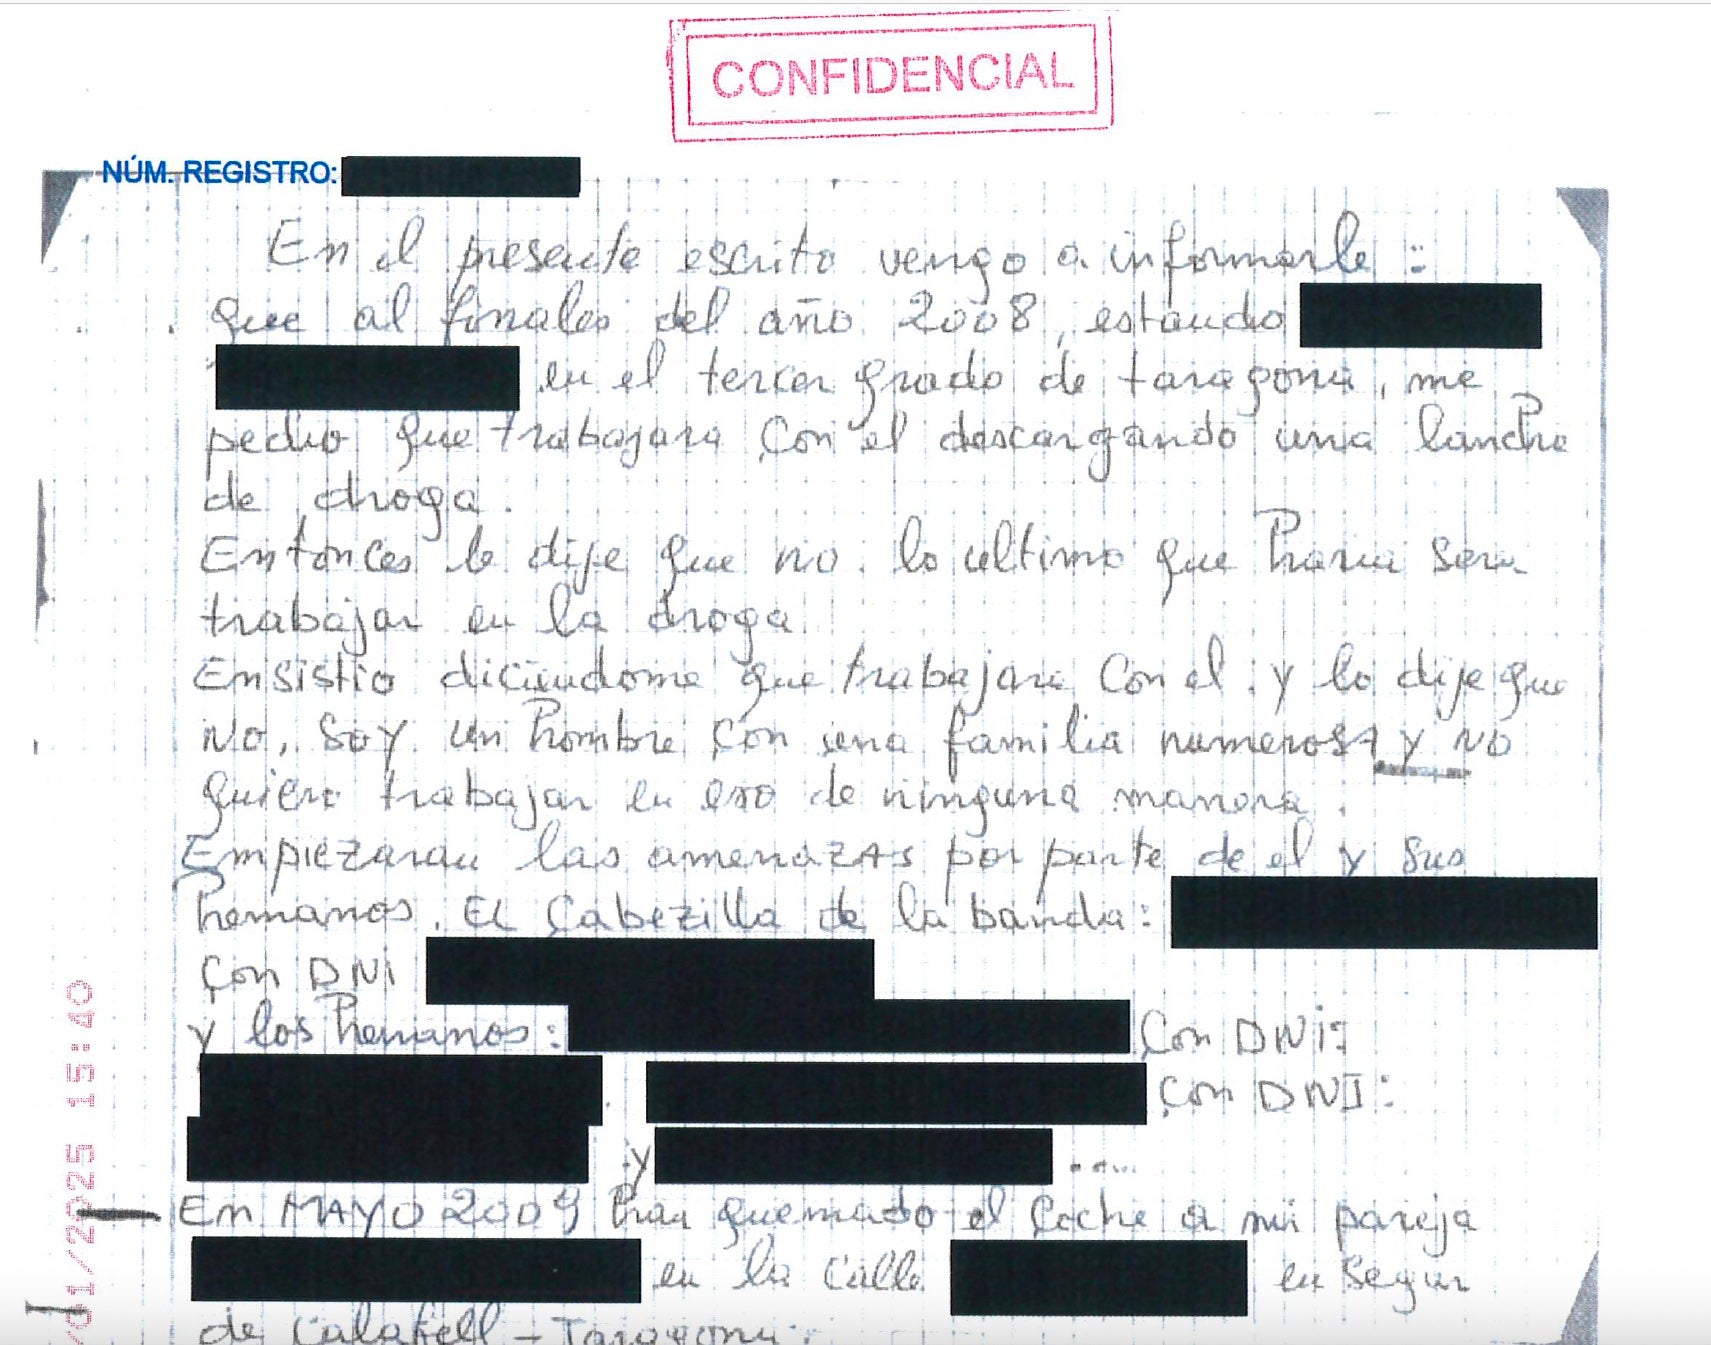 CONFIDENCIAL
NÚM. REGISTRO:
En el presente escrito vengo a informarle :
que al finales del año 2008, estando
en el tercer grado de taragona, me
pedio que trabajara con el descargando una lancha
de droga.
Entonces le dije que no. lo ultimo que haria sera
trabajar en la droga.
Ensistio diciendome que trabajara con el. y le dije que
NO, soy un hombre con una familia numerosa y NO
quiero trabajar en eso de ninguna manera.
Empiezaran las amenazas por parte de el y sus
hemanos. El Cabezilla de la banda:
con DNi
y los hemanos: con DNi:
. con DNI:
y ....
En MAYO 2009 han quemado el coche a mi pareja
en la calle en Segur
de Calafell - Taragona.
/01/2025 15:40